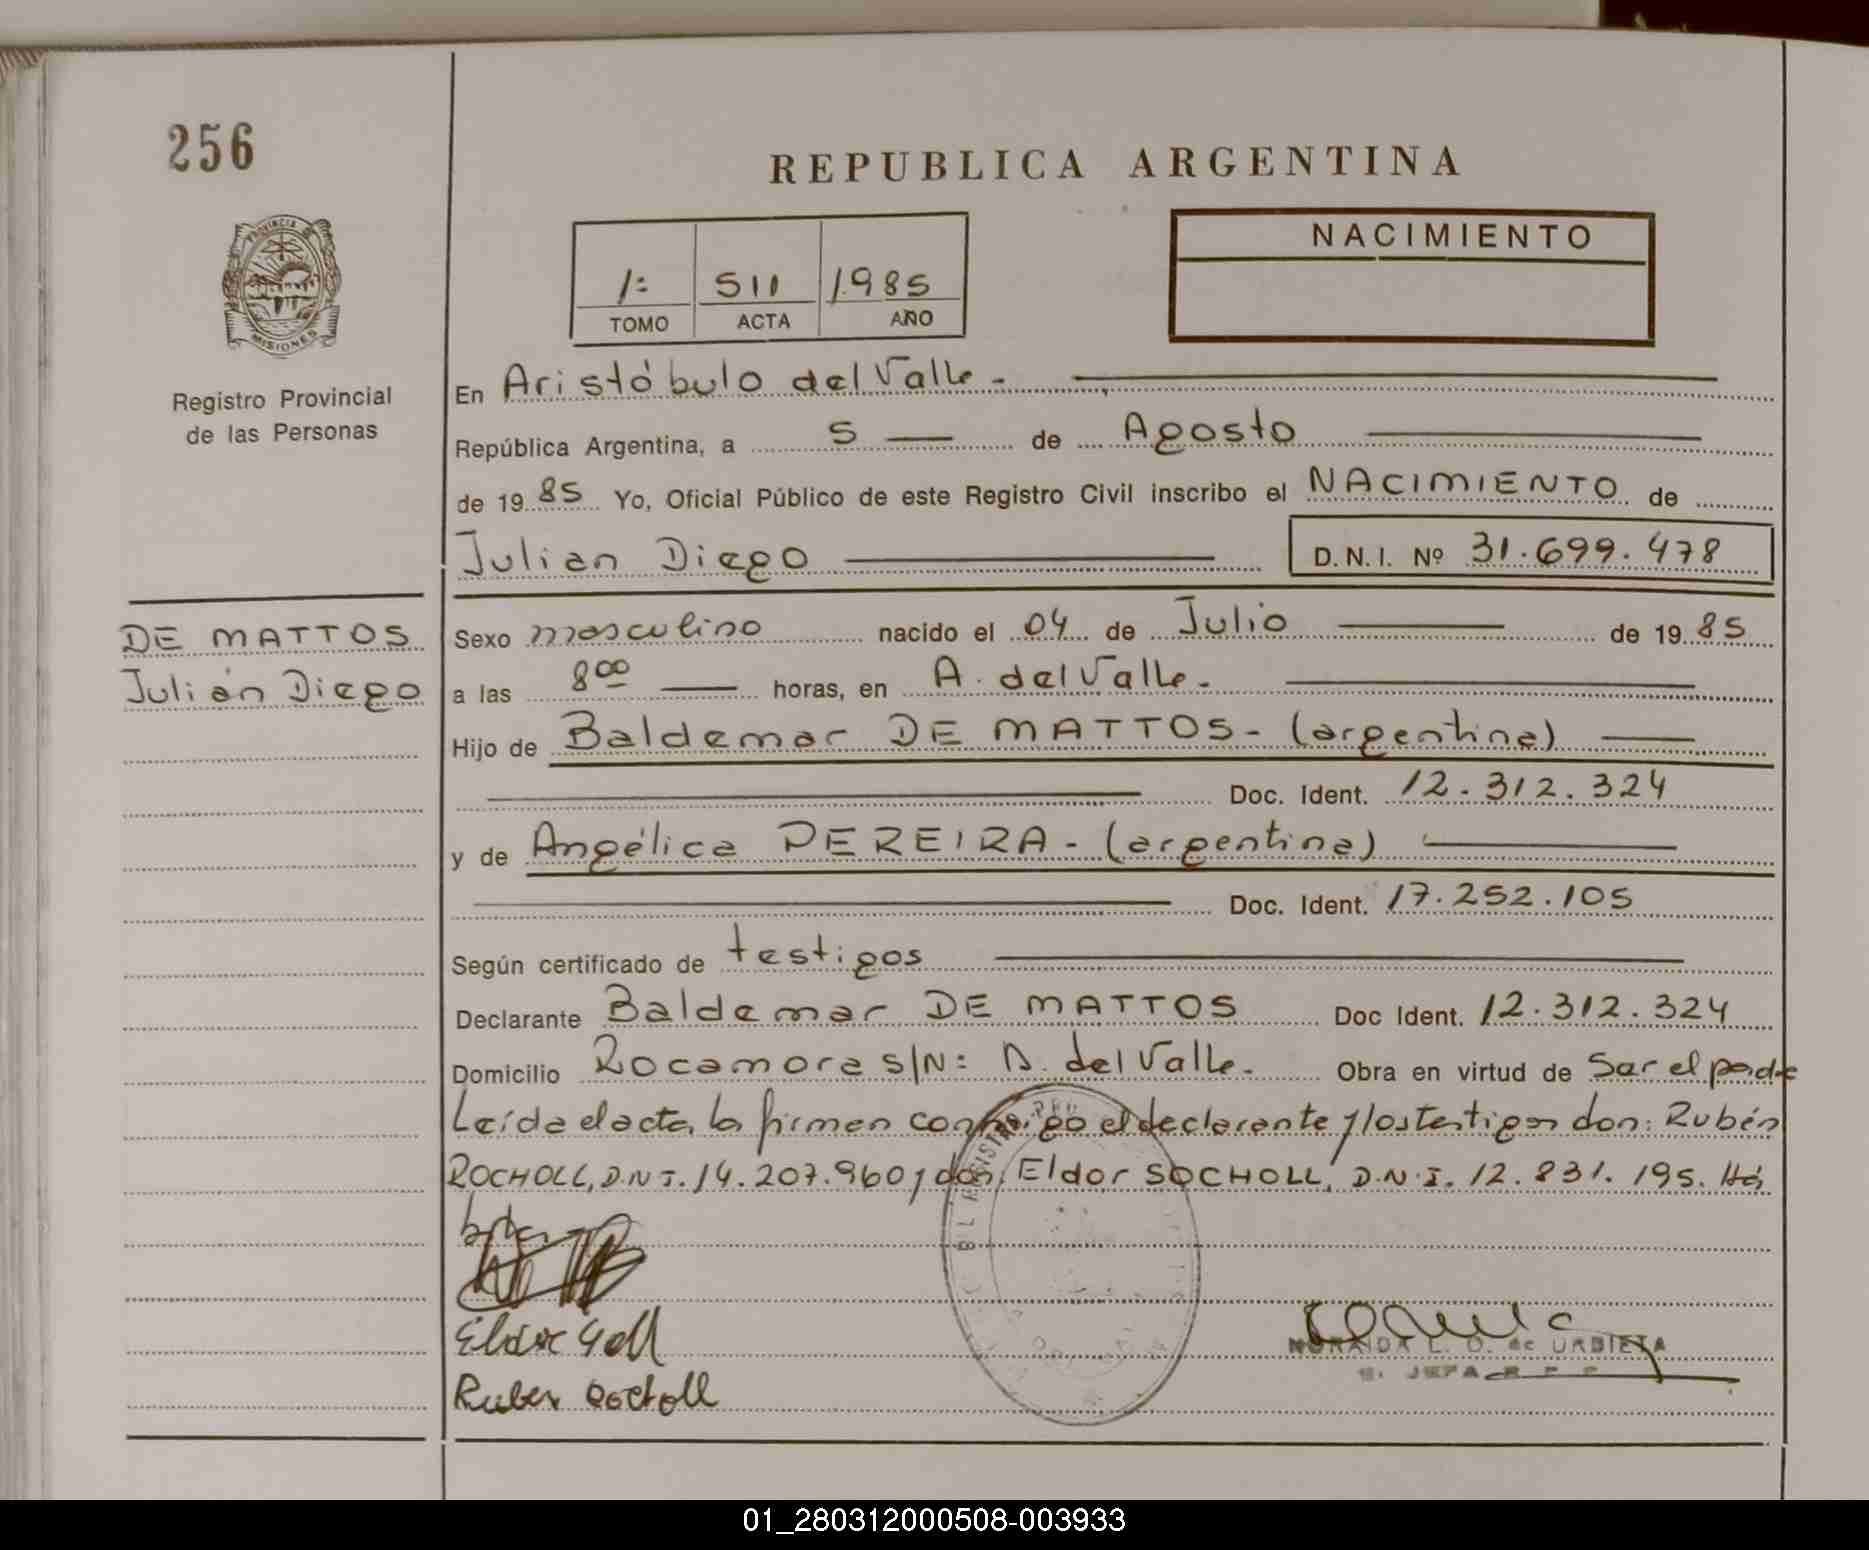 256
REPUBLICA ARGENTINA
PROVINCIA DE
MISIONES
Registro Provincial
de las Personas
1= 511 1985
TOMO ACTA AÑO
NACIMIENTO
En Aristóbulo del Valle.-
República Argentina, a 5 de Agosto
de 1985 Yo, Oficial Público de este Registro Civil inscribo el NACIMIENTO de
Julian Diego D.N.I. Nº 31.699.478
DE MATTOS
Julián Diego
Sexo masculino nacido el 04 de Julio de 1985
a las 8 00 horas, en A. del Valle.-
Hijo de Baldemar DE MATTOS.- (argentina)
Doc. Ident. 12.312.324
y de Angélica PEREIRA.- (argentina)
Doc. Ident. 17.252.105
Según certificado de testigos
Declarante Baldemar DE MATTOS Doc Ident. 12.312.324
Domicilio Rocamora S/N= A. del Valle.- Obra en virtud de Ser el padre
Leída el acta, la firman conmigo el declarante y los testigos don: Rubén
ROCHOLL, D.N.I. 14.207.960 y don: Eldor SOCHOLL, D.N.I. 12.831.195.
Ruben Rocholl
NORAIDA L. D. de URBIETA
JEFA R P P
01_280312000508-003933